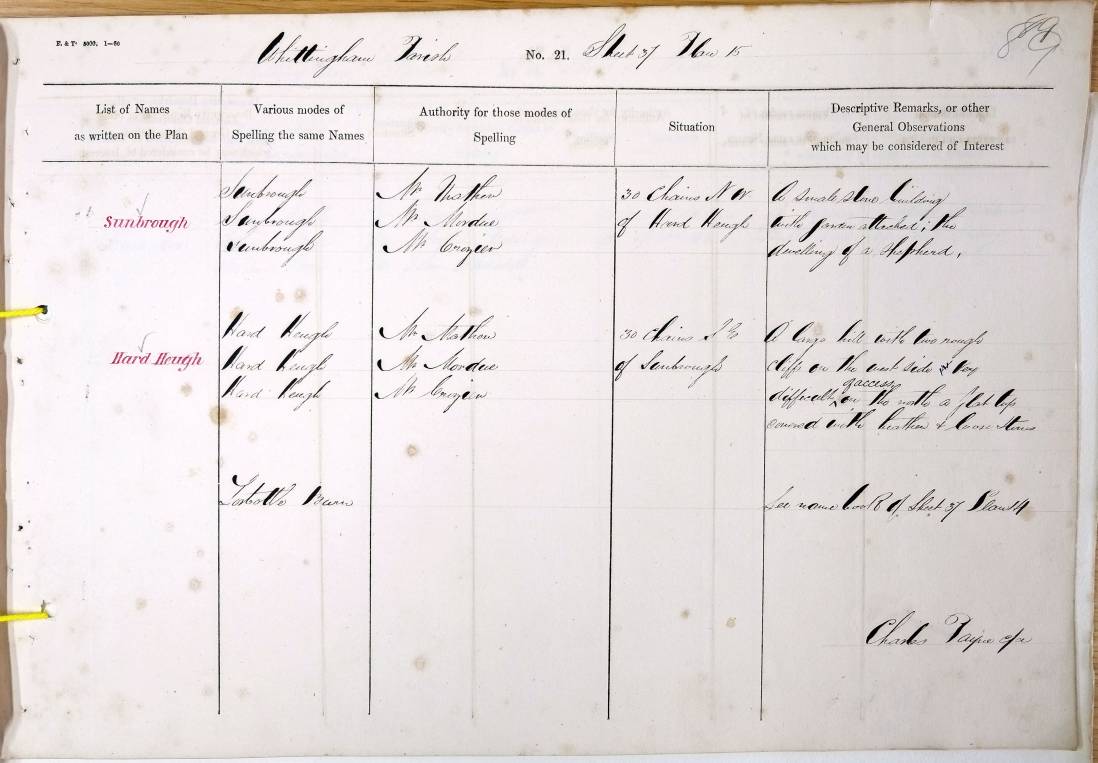 E. & T. 5000. 1—60
Whittingham Parish No. 21. Sheet 37 Plan 15
89
List of Names
as written on the Plan
Various modes of
Spelling the same Names
Authority for those modes of
Spelling
Situation
Descriptive Remarks, or other
General Observations
which may be considered of Interest
Sunbrough
Sunbrough
Sunbrough
Sunbrough
Mr Mathon
Mr Mordue
Mr Crozier
30 Chains N W
of Hard Heugh
A small stone building
with garden attached; the
dwelling of a Shepherd.
Hard Heugh
Hard Heugh
Hard Heugh
Hard Heugh
Mr Mathon
Mr Mordue
Mr Crozier
30 Chains S E
of Sunbrough
A large hill with two rough
cliffs on the west side very
difficult of access on the north a flat top
covered with heather & loose stones
Burn
See name book of Sheet 37 Plan 14
Charles Payne c/a